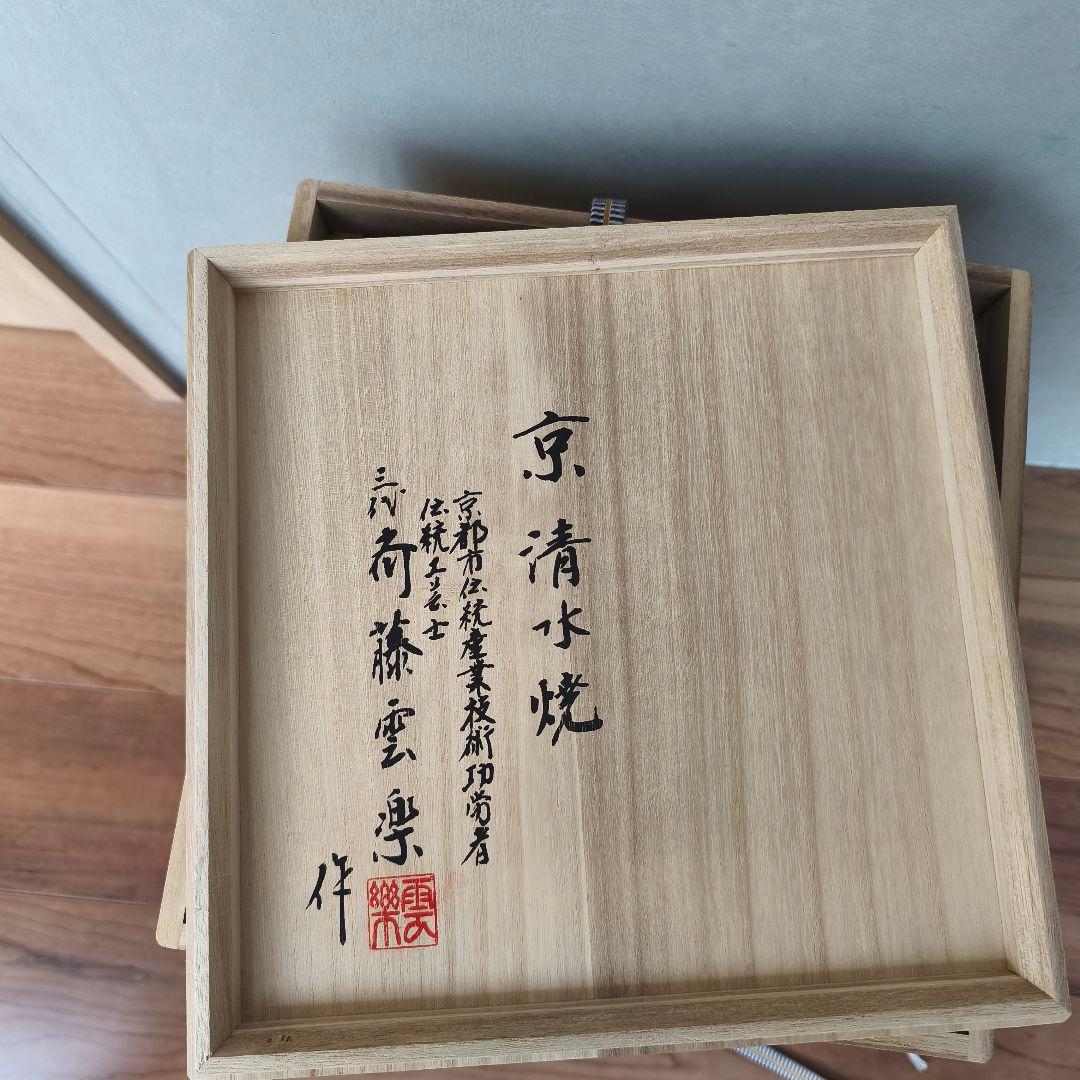 京清水焼
京都市伝統産業技術功労者
伝統工芸士
三代斉藤雲楽
作
雲楽